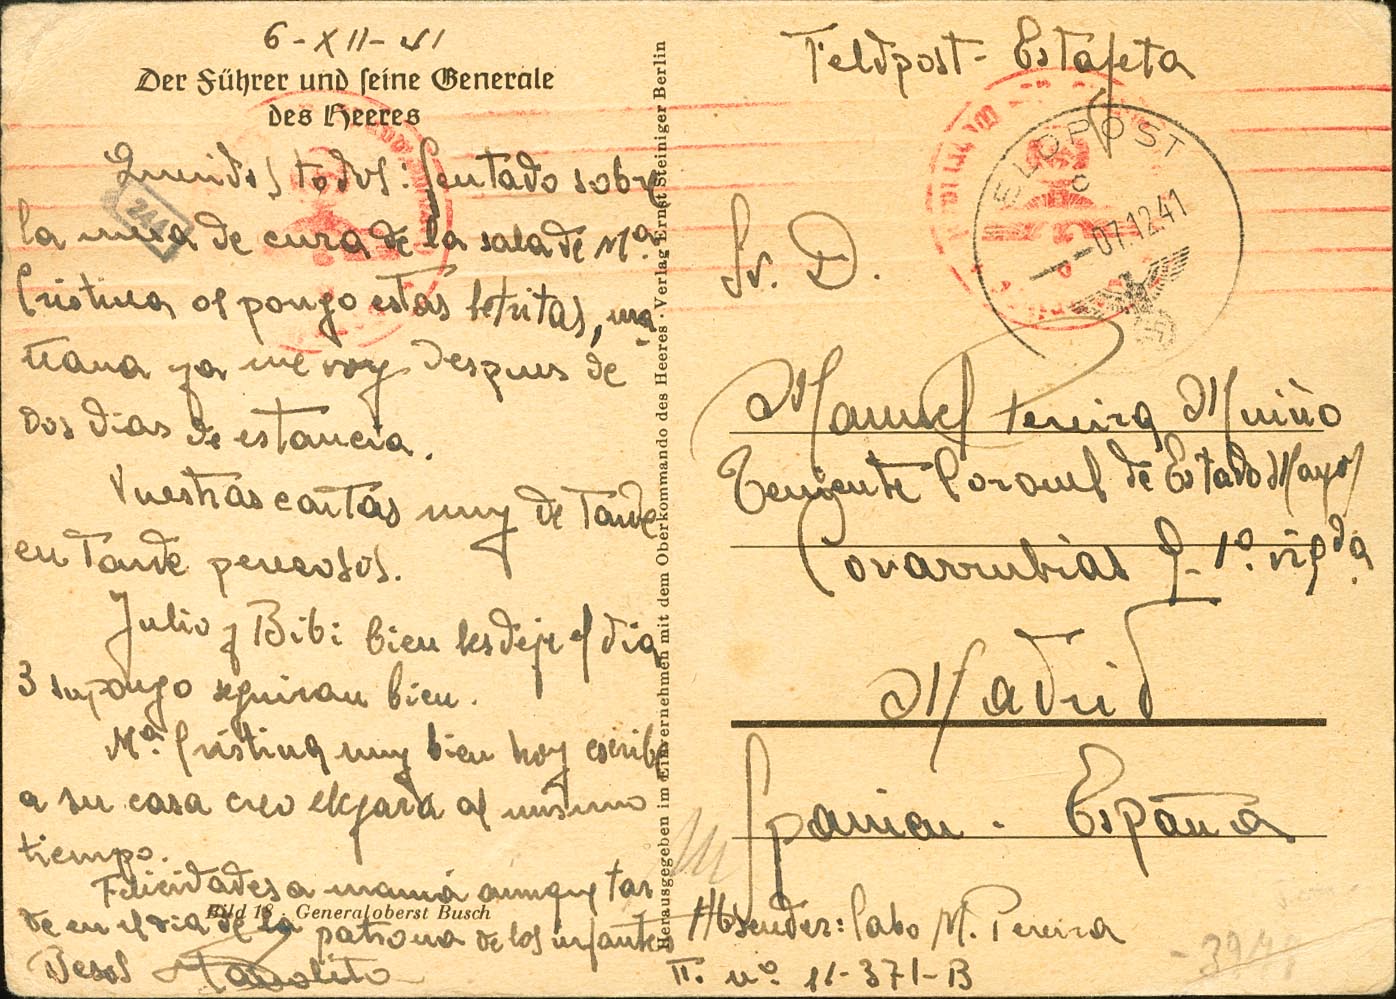 6-XII-41
Der Führer und seine Generale
des Heeres
Queridos todos: Sentado sobre
la mesa de cura de la sala de Mª
Cristina os pongo estas letritas, ma-
ñana ya me voy despues de
dos dias de estancia.
Vuestras cartas muy de tarde
en tarde perezosos.
Julio y Bibi bien les dejé el dia
3 supongo seguiran bien.
Mª Cristina muy bien hoy escribe
a su casa creo llegará al mismo
tiempo.
Felicidades a mamá aunque tar-
de en el dia de la patrona de los infantes
Bild 18 · Generaloberst Busch
Besos Manolito
Herausgegeben im Einvernehmen mit dem Oberkommando des Heeres · Verlag Ernst Steiniger Berlin
Feldpost - Estafeta
FELDPOST
c
-07.12.41
244
Sr. D.
Manuel Pereira Muiño
Teniente Coronel de Estado Mayor
Covarrubias 9-1º izqdª
Madrid
Spanien - España
Absender: Cabo M. Pereira
F. nº 11-371-B